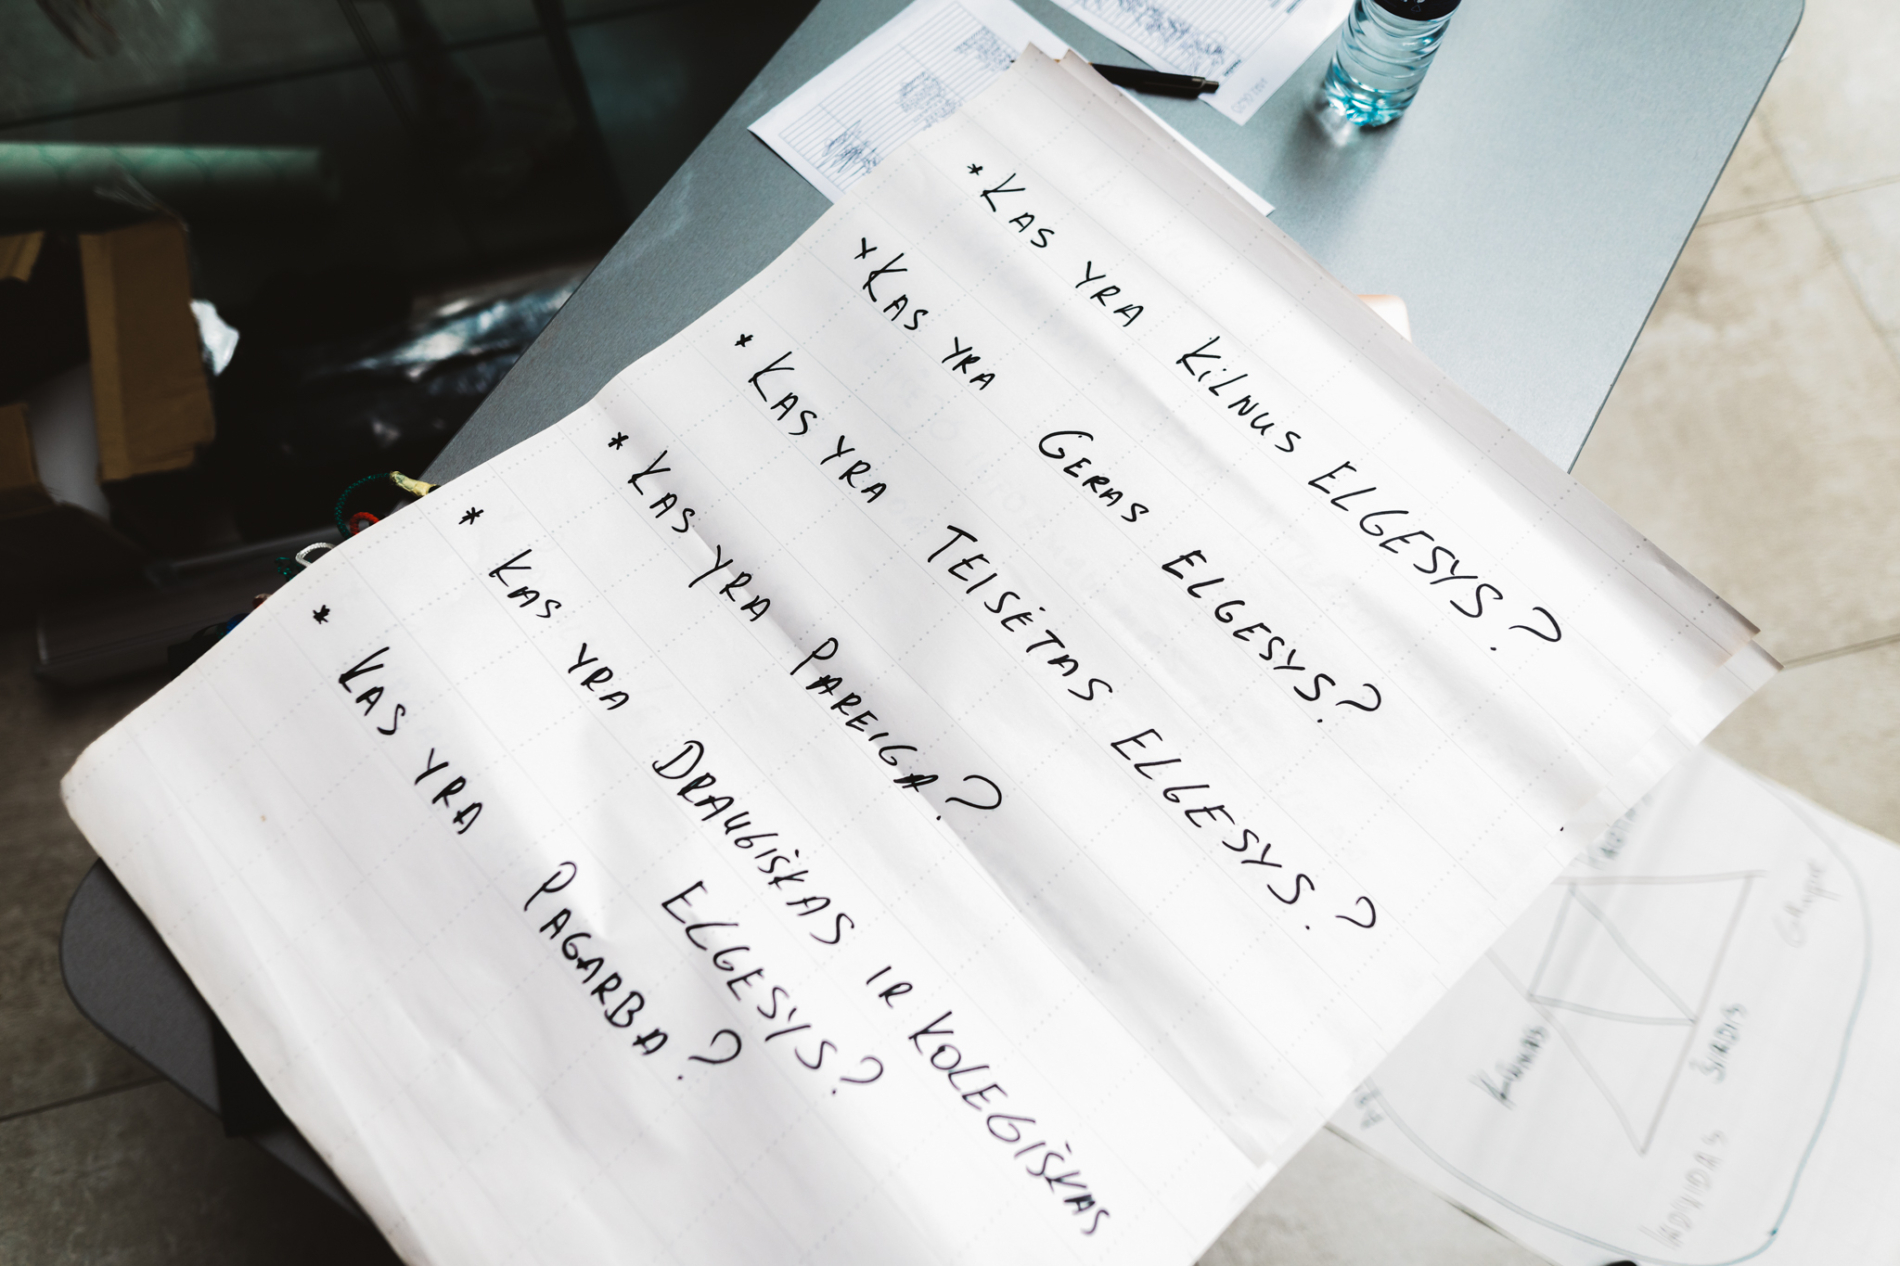 * KAS YRA KiLNUS ELGESYS?
* KAS YRA GERAS ELGESYS?
* KAS YRA TEISĖTAS ELGESYS?
* KAS YRA PAREIGA?
* KAS YRA DRAUGiŠKAS IR KOLEGiŠKAS
ELGESYS?
* KAS YRA PAGARBA?
GRUPĖ
KŪNAS
INDIVIDAS